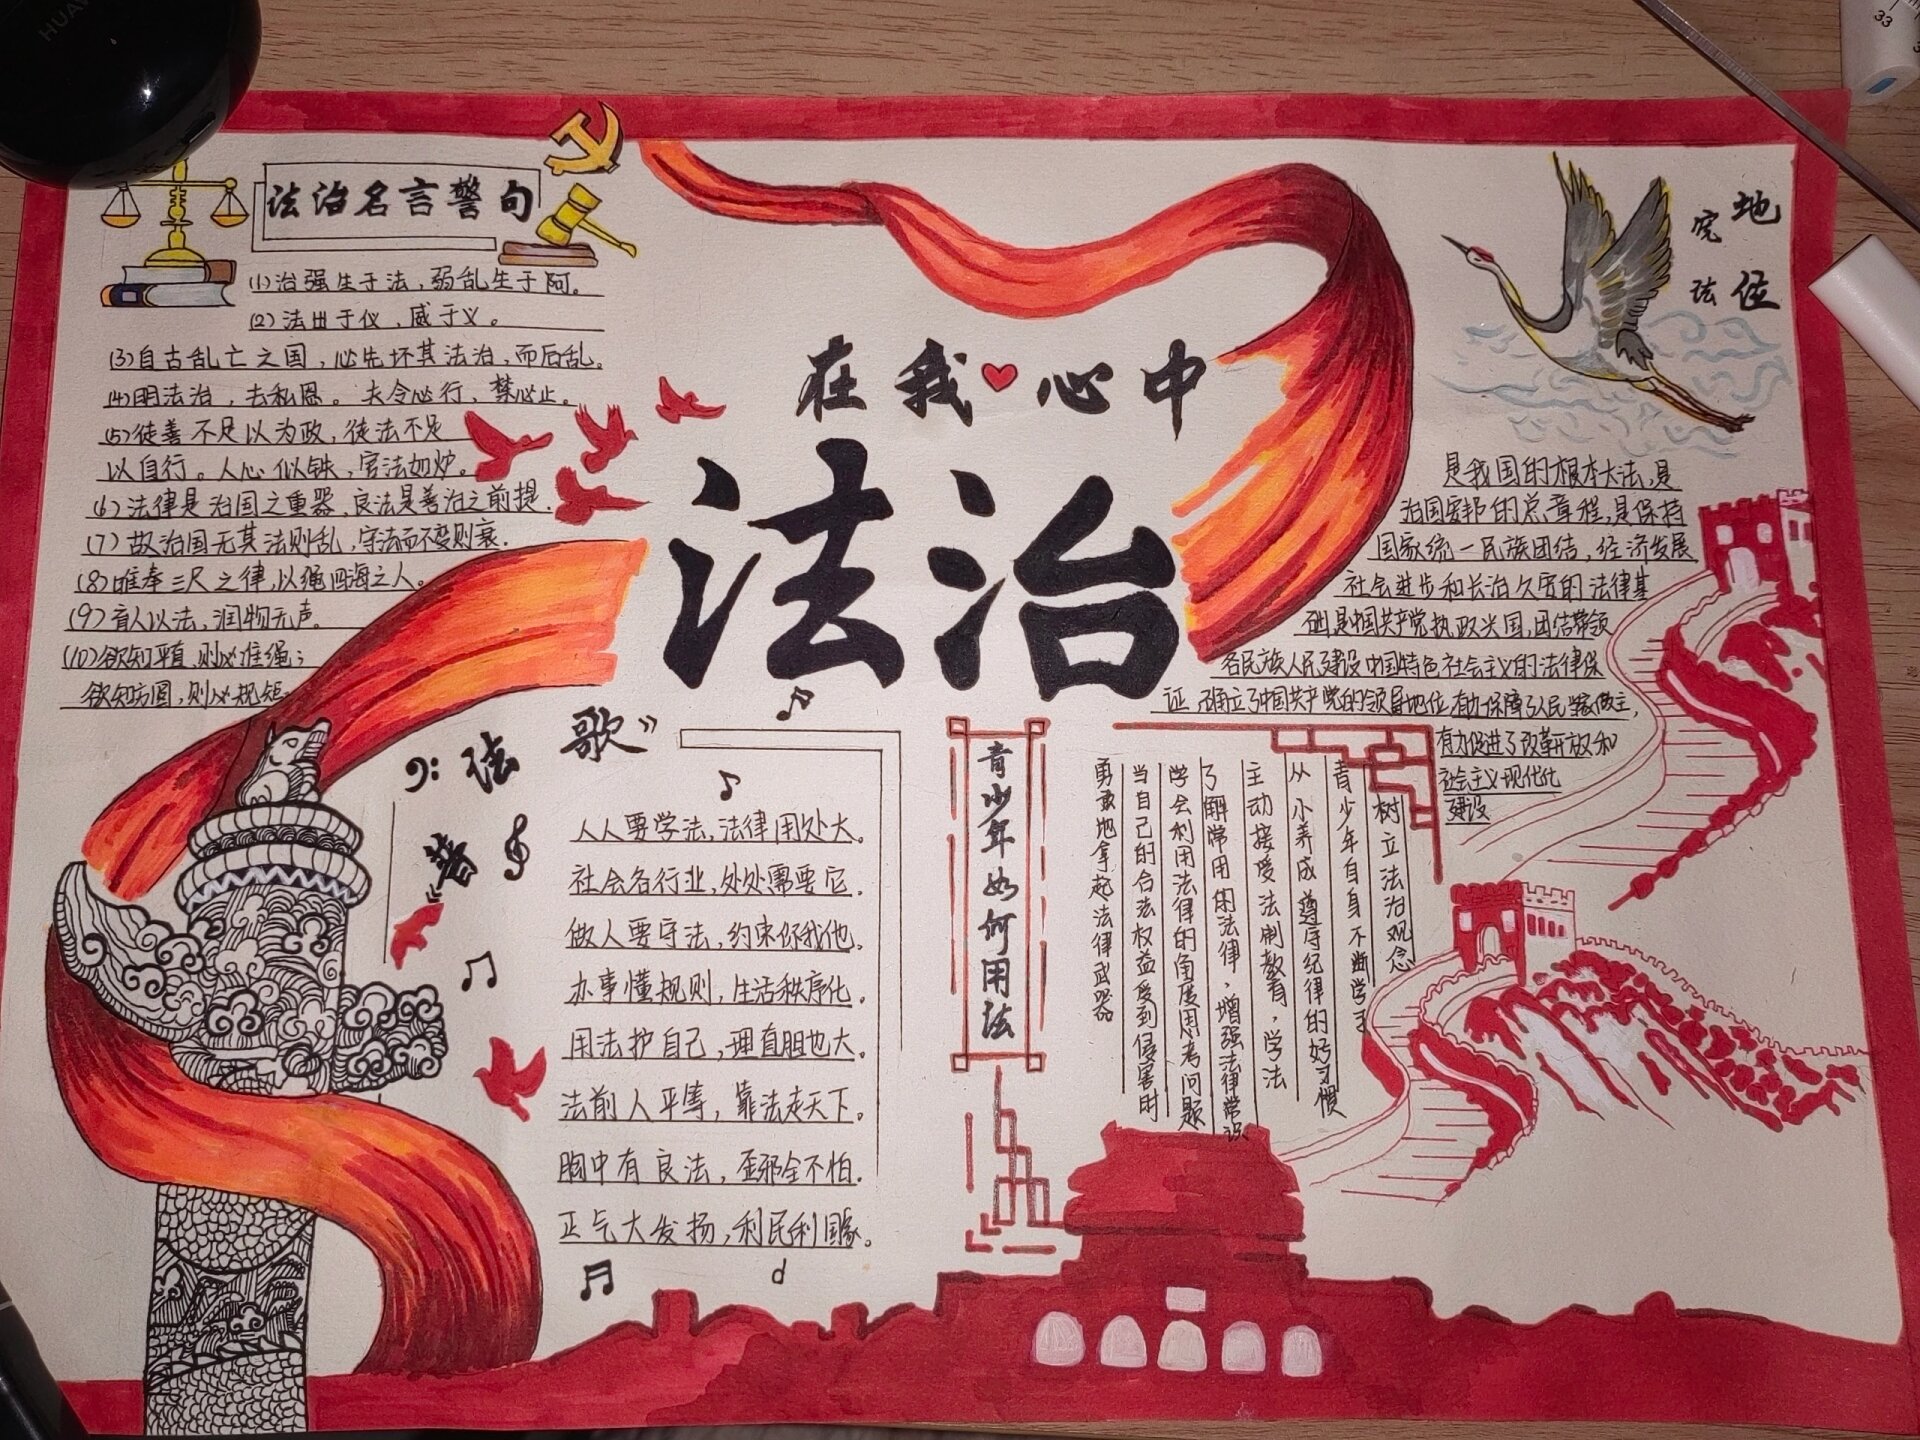 法治名言警句
(1)治强生于法，弱乱生于阿。
(2)法出于仪，威于义。
(3)自古乱亡之国，必先坏其法治，而后乱。
(4)明法治，去私恩。夫令必行，禁必止。
(5)徒善不足以为政，徒法不足
以自行。人心似铁，官法如炉。
(6)法律是治国之重器，良法是善治之前提.
(7)故治国无其法则乱，守法而不变则衰.
(8)唯奉三尺之律，以绳四海之人。
(9)育人以法，润物无声。
(10)欲知平直，则必准绳；
欲知方圆，则必规矩
在我心中
法治
宪法
地位
是我国的根本大法，是
治国安邦的总章程，是保持
国家统一民族团结，经济发展
社会进步和长治久安的法律基
础是中国共产党执政兴国，团结带领
各民族人民建设中国特色社会主义的法律保
证，确立了中国共产党的领导地位有力保障了人民当家做主，
有力促进了改革开放和
社会主义现代化
建设
普法歌”
人人要学法，法律用处大。
社会各行业，处处需要它.
做人要守法，约束你我他.
办事懂规则，生活秩序化.
用法护自己，理直胆也大。
法前人平等，靠法走天下。
胸中有良法，歪邪全不怕.
正气大发扬，利民利国家。
青少年如何用法
树立法治观念
青少年自身不断学习
从小养成遵守纪律的好习惯
主动接受法制教育，学法
了解常用的法律，增强法律常识
学会利用法律的角度思考问题
当自己的合法权益受到侵害时
勇敢地拿起法律武器